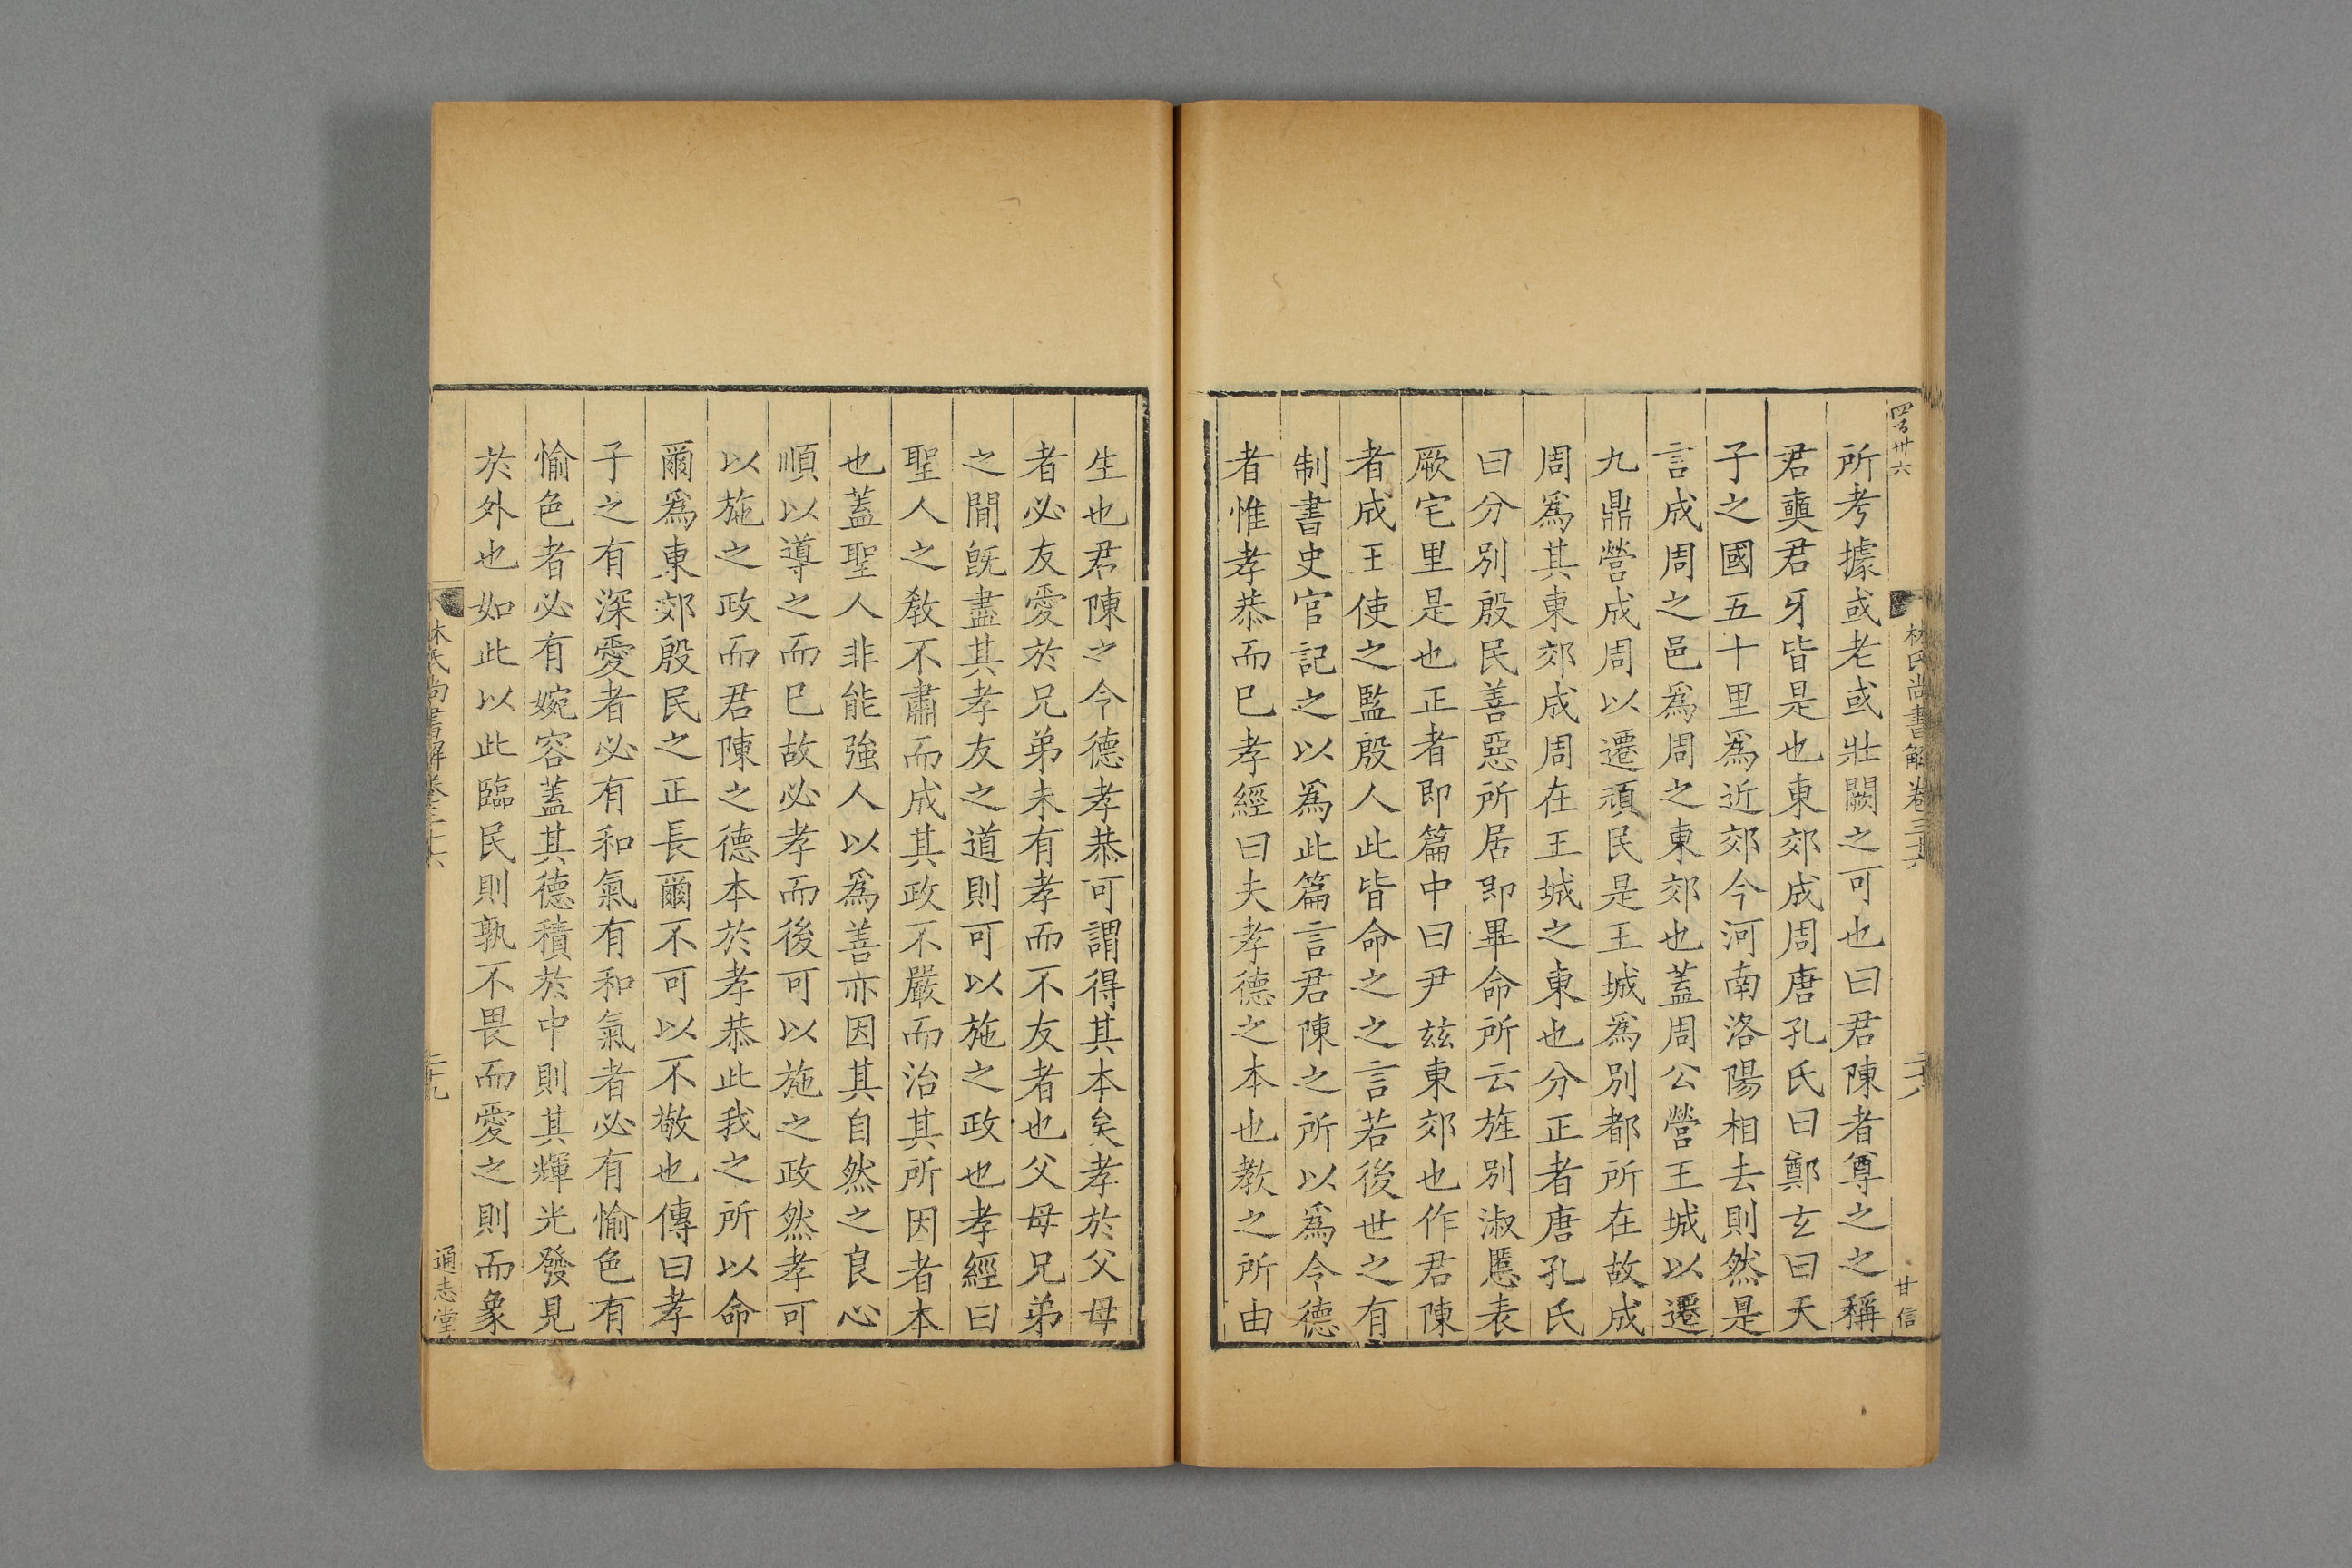 林氏尚書解卷三十六
二十八
甘信
所考據或老或壯闕之可也曰君陳者尊之之稱
君奭君牙皆是也東郊成周唐孔氏曰鄭玄曰天
子之國五十里爲近郊今河南洛陽相去則然是
言成周之邑爲周之東郊也蓋周公營王城以遷
九鼎營成周以遷頑民是王城爲別都所在故成
周爲其東郊成周在王城之東也分正者唐孔氏
曰分別殷民善惡所居即畢命所云旌別淑慝表
厥宅里是也正者即篇中曰尹兹東郊也作君陳
者成王使之監殷人此皆命之之言若後世之有
制書史官記之以爲此篇言君陳之所以爲令德
者惟孝恭而巳孝經曰夫孝德之本也教之所由
生也君陳之令德孝恭可謂得其本矣孝於父母
者必友愛於兄弟未有孝而不友者也父母兄弟
之閒旣盡其孝友之道則可以施之政也孝經曰
聖人之敎不肅而成其政不嚴而治其所因者本
也蓋聖人非能強人以爲善亦因其自然之良心
順以導之而巳故必孝而後可以施之政然孝可
以施之政而君陳之德本於孝恭此我之所以命
爾爲東郊殷民之正長爾不可以不敬也傳曰孝
子之有深愛者必有和氣有和氣者必有愉色有
愉色者必有婉容蓋其德積於中則其輝光發見
於外也如此以此臨民則孰不畏而愛之則而象
林氏尚書解卷三十六
二十九
通志堂